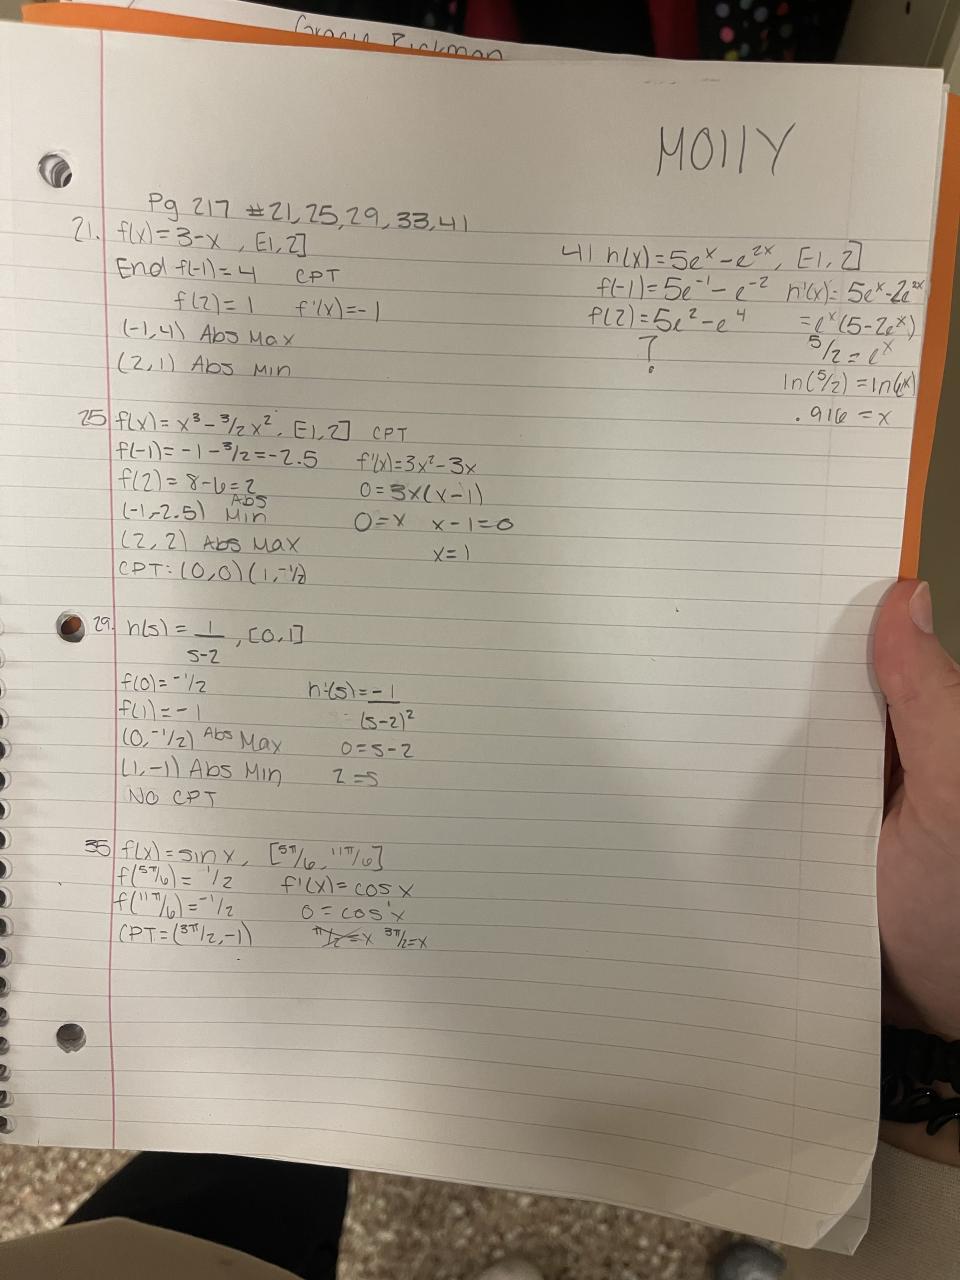 MOllY
Pg 217 #21, 25, 29, 33, 41
21. f(x) = 3-x , E1, 2]
End f(-1) = 4 CPT
f(2) = 1 f'(x) = -1
(-1, 4) Abs Max
(2, 1) Abs Min
25 f(x) = x³ - 3/2 x², E1, 2] CPT
f(-1) = -1 - 3/2 = -2.5 f'(x) = 3x² - 3x
f(2) = 8 - 6 = 2 0 = 3x(x-1)
(-1, -2.5) Abs Min 0 = x x - 1 = 0
(2, 2) Abs Max x = 1
CPT: (0, 0) (1, -1/2)
29. h(s) = 1/s-2 , [0, 1]
f(0) = -1/2 h'(s) = -1/(s-2)²
f(1) = -1
(0, -1/2) Abs Max 0 = s-2
(1, -1) Abs Min 2 = s
NO CPT
35 f(x) = sin x, [5π/6, 11π/6]
f(5π/6) = 1/2 f'(x) = cos x
f(11π/6) = -1/2 0 = cos x
CPT = (3π/2, -1) π/2 = x 3π/2 = x
41 h(x) = 5e^x - e^2x, E1, 2]
f(-1) = 5e^-1 - e^-2 h'(x) = 5e^x - 2e^2x
f(2) = 5e² - e⁴ = e^x(5 - 2e^x)
? 5/2 = e^x
ln(5/2) = ln(e^x)
.916 = x